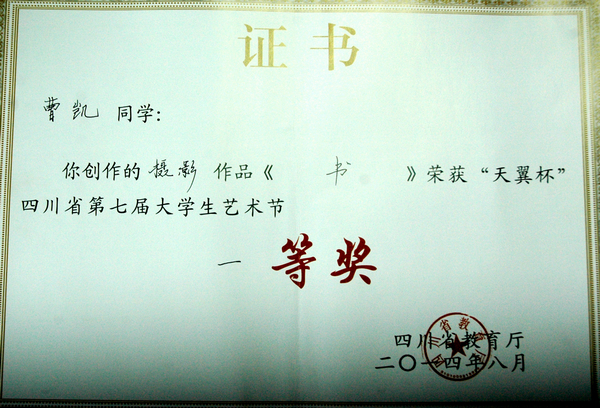 证书
曹凯 同学：
你创作的 摄影 作品《 书 》荣获“天翼杯”
四川省第七届大学生艺术节
一 等奖
四川省教育厅
二〇一四年八月